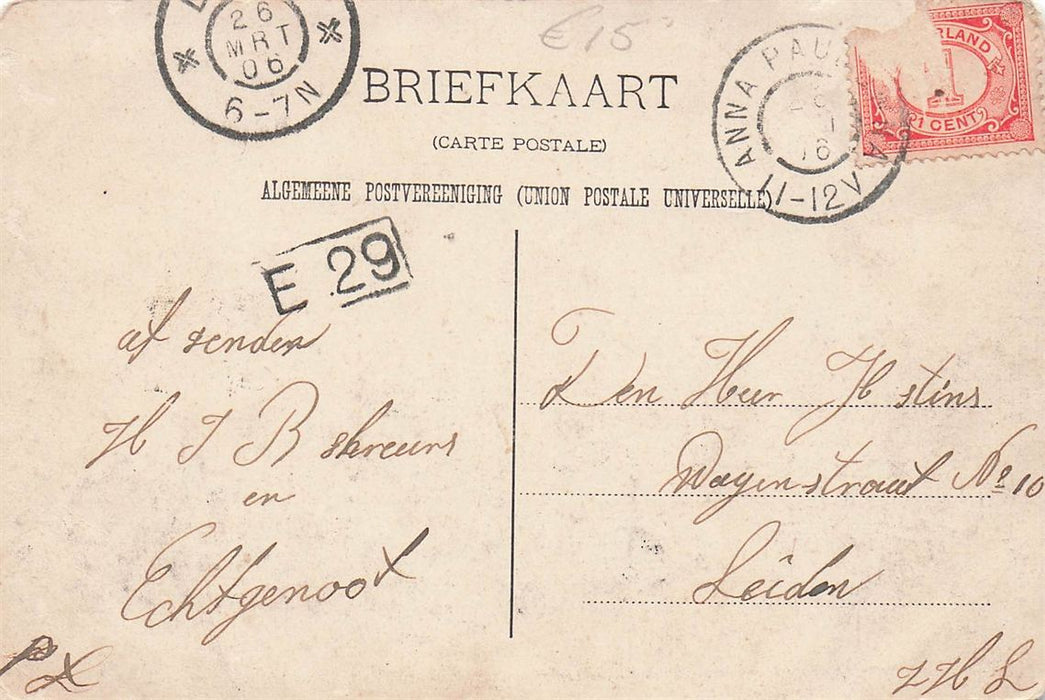 26
MRT
06
6-7N
€15
BRIEFKAART
(CARTE POSTALE)
ALGEMEENE POSTVEREENIGING (UNION POSTALE UNIVERSELLE)
ANNA PAU
11-12V
RLAND
1
1 CENT
E 29
af senden
H J B shreurs
en
Echtgenoot
Den Heer H stins
Wagenstraat No 10
Leiden
Z H L